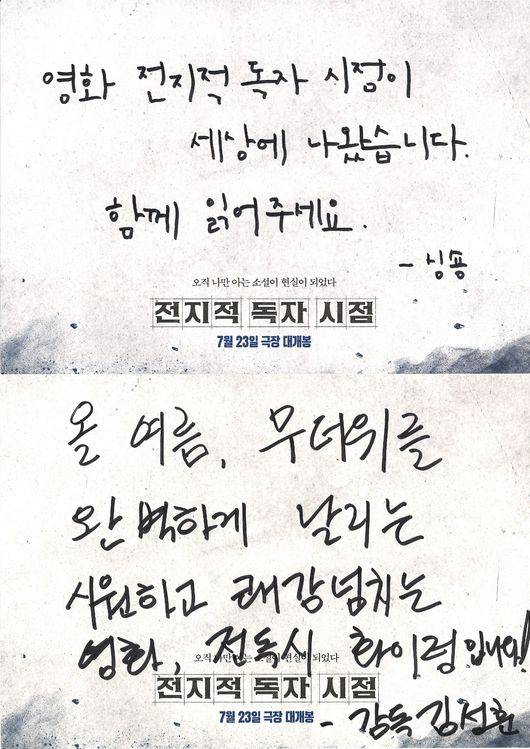 영화 전지적 독자 시점이
세상에 나왔습니다.
함께 읽어주세요.
- 싱숑
오직 나만 아는 소설이 현실이 되었다
전지적 독자 시점
7월 23일 극장 대개봉
올 여름, 무더위를
완벽하게 날리는
시원하고 쾌감넘치는
영화, 전독시 화이팅입니다!
오직 나만 아는 소설이 현실이 되었다
전지적 독자 시점
7월 23일 극장 대개봉
- 감독 김